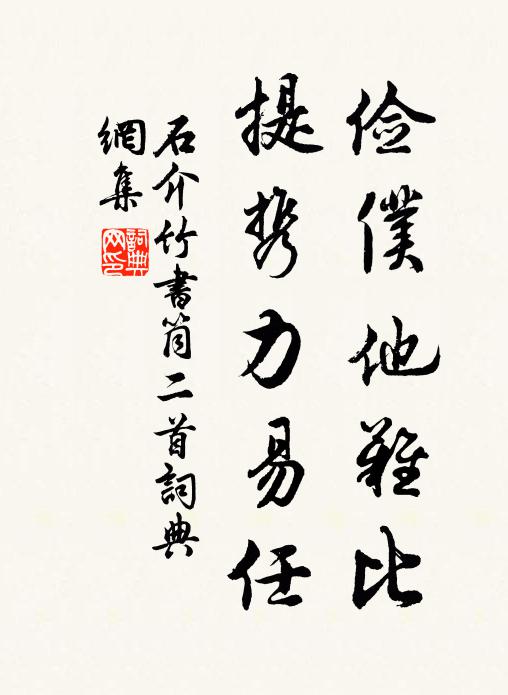 俭僕他難比
提携力易任
石介竹書筒二首詞典
網集
詞典
网印